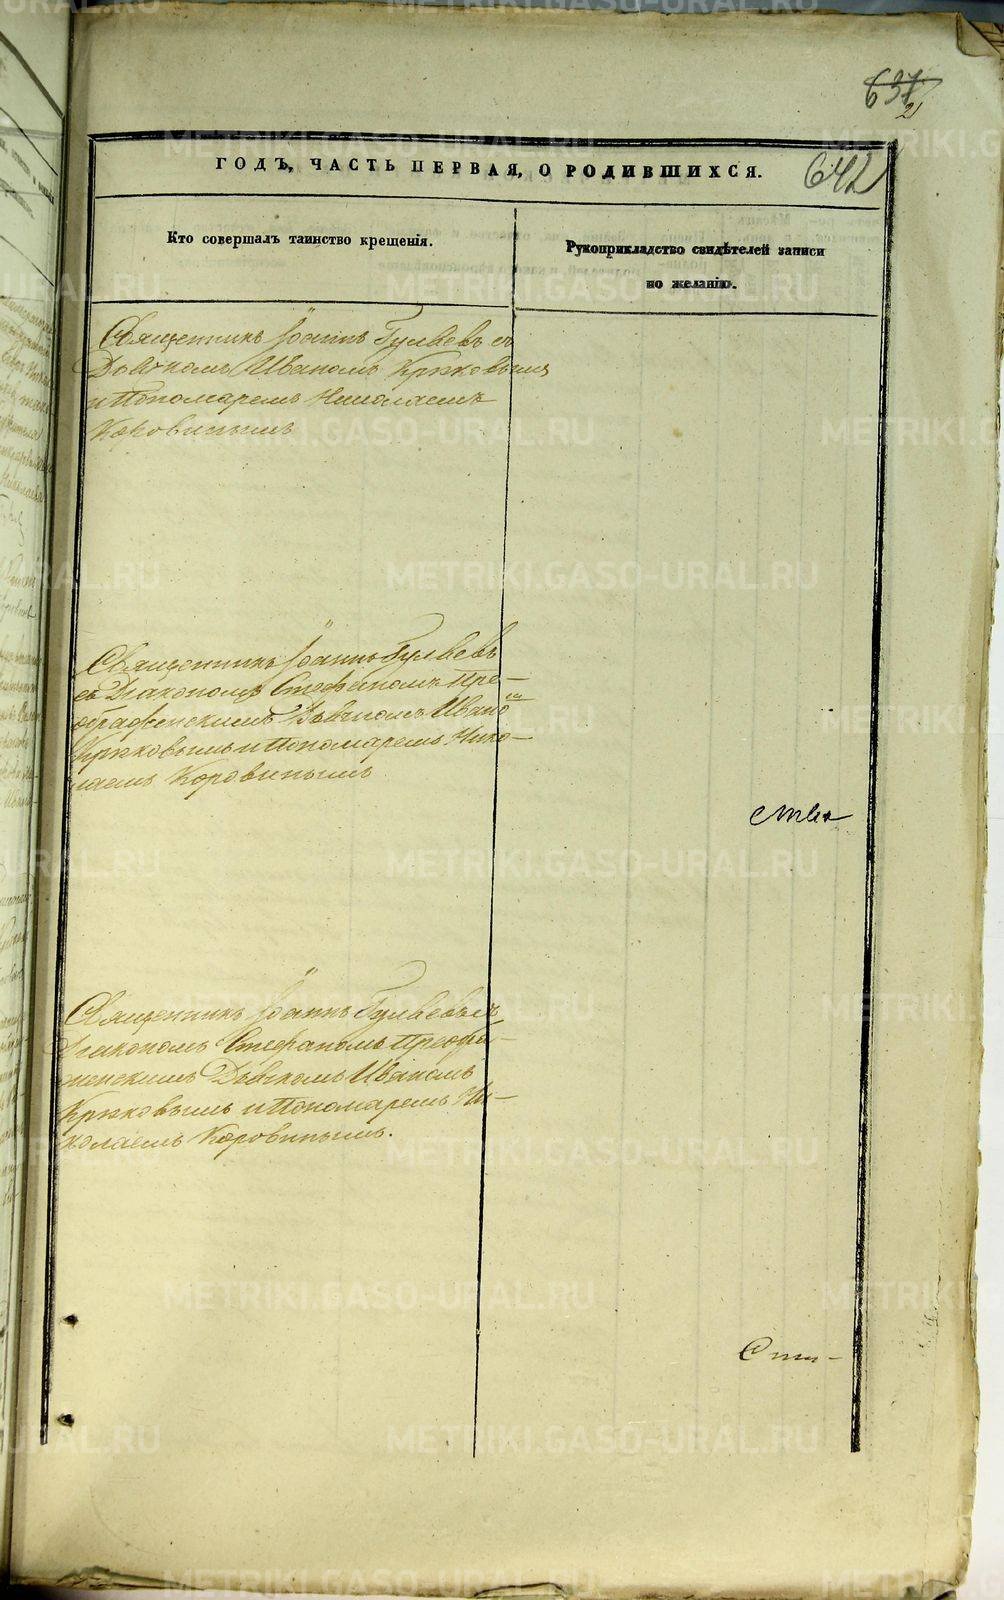 637
2
642
ГОДЪ, ЧАСТЬ ПЕРВАЯ, О РОДИВШИХСЯ.
Кто совершалъ таинство крещенія.
Рукоприкладство свидѣтелей записи
по желанію.
Священникъ Іоаннъ Гуляевъ съ
Дьячкомъ Иваномъ Крюковымъ
и Пономаремъ Николаемъ
Коровинымъ
Священникъ Іоаннъ Гуляевъ
съ Діакономъ Стефаномъ Пре-
ображенскимъ Дьячкомъ Иваномъ
Крюковымъ и Пономаремъ Нико-
лаемъ Коровинымъ
Священникъ Іоаннъ Гуляевъ съ
Діакономъ Стефаномъ Преобра-
женскимъ Дьячкомъ Иваномъ
Крюковымъ и Пономаремъ Ни-
колаемъ Коровинымъ.
METRIKI.GASO-URAL.RU